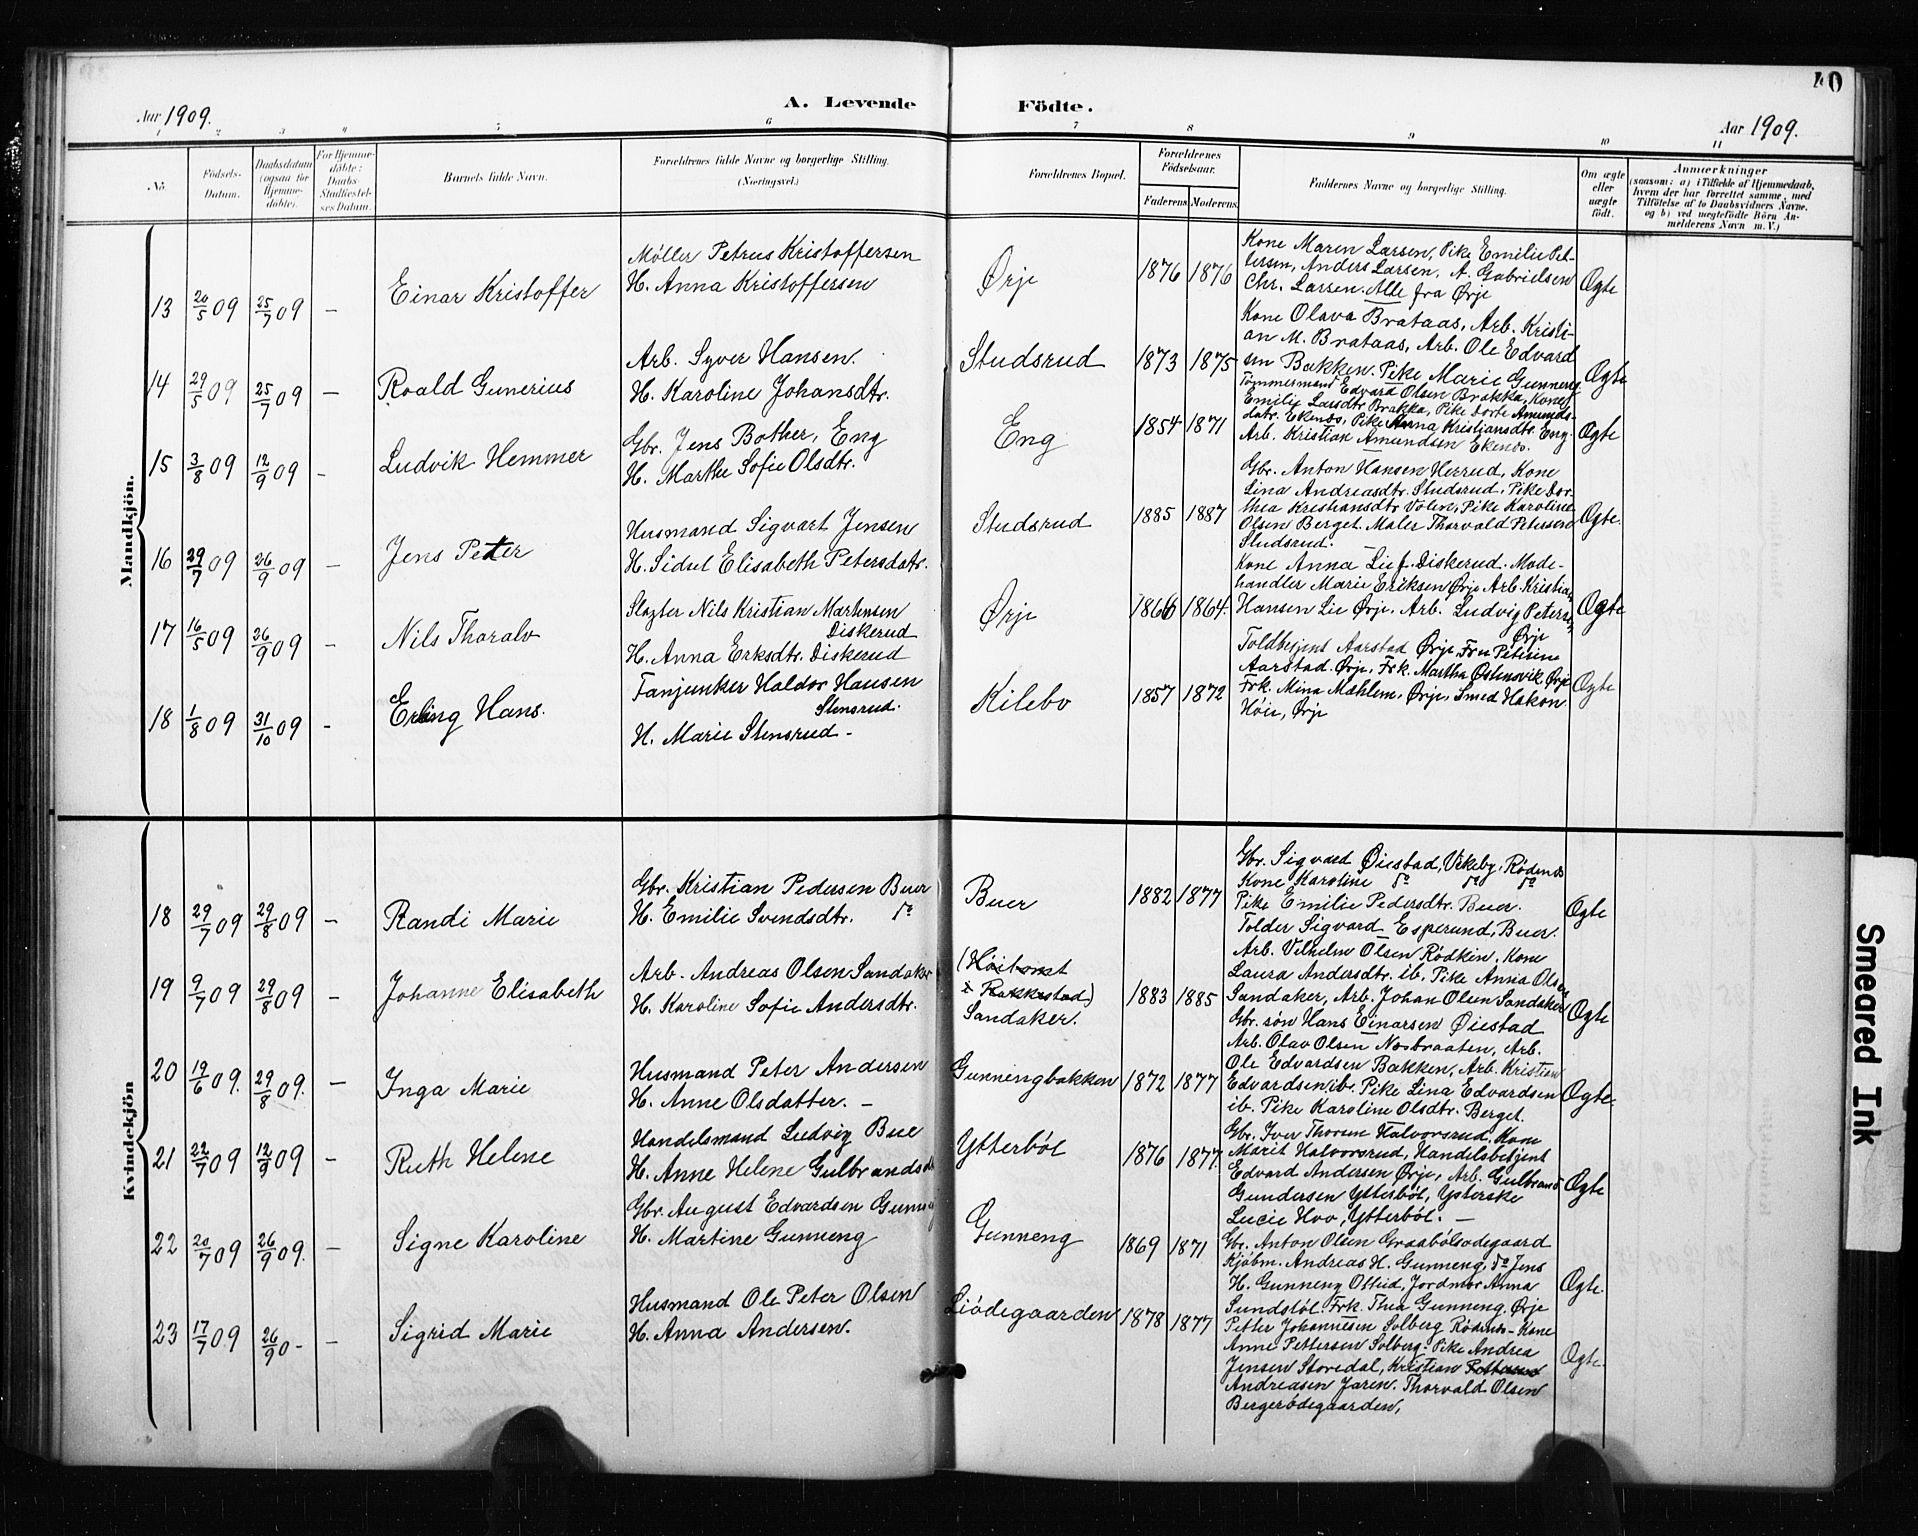 40
Aar 1909.
A. Levende Födte.
Aar 1909.
1 2 3 4 5 6 7 8 9 10 11
No.
Födsels-
Datum.
Daabsdatum
(ogsaa for
Hjemme-
döbte).
For Hjemme-
döbte:
Daabs-
Stadfæstel-
ses Datum.
Barnets fulde Navn.
Forældrenes fulde Navne og borgerlige Stilling.
(Næringsvei.)
Forældrenes Bopæl.
Forældrenes
Födselsaar.
Faderens. Moderens.
Faddernes Navne og borgerlige Stilling.
Om ægte
eller
uægte
födt.
Anmærkninger
(saasom: a) i Tilfælde af Hjemmedaab,
hvem der har forrettet samme, med
Tilföielse af to Daabsvidners Navne,
og b) ved uægtefödte Börn An-
melderens Navn m. V.)
Mandkjön.
13 20/5 09 25/7 09 – Einar Kristoffer
Møller Petrus Kristoffersen
H. Anna Kristoffersen
Ørje 1876 1876
Kone Maren Larsen, Pike Emilie Pet-
tersen, Anders Larsen, A. Gabrielsen
Chr. Larsen. Alle fra Ørje
Ogte
14 29/5 09 25/7 09 – Roald Gunerius
Arb. Syver Hansen.
H. Karoline Johansdtr.
Studsrud 1873 1875
Kone Olava Brataas, Arb. Kristi-
an M. Brataas, Arb. Ole Edvard
sen Bakken. Pike Marie Gunneng.
Ogte
15 3/8 09 12/9 09 – Ludvik Hemmer
Gbr. Jens Bother, Eng
H. Marthe Sofie Olsdtr.
Eng 1854 1871
Tømmermand Edvard Olsen Brakka, Kone
Emilie Larsdtr. Brakka, Pike Dorte Amunds-
datr. Ekenes, Pike Anna Kristiansdtr. Eng.
Arb. Kristian Amundsen Ekenes.
Ogte
16 29/7 09 26/9 09 – Jens Peter
Husmand Sigvart Jensen
H. Sidsel Elisabeth Petersdatr.
Studsrud 1885 1887
Gbr. Anton Hansen Herrud, Kone
Lina Andreasdtr. Studsrud, Pike Dor-
thea Kristiansdtr Volen, Pike Karoline
Olsen Berget. Maler Thorvald Petersen
Studsrud.
Ogte.
17 16/5 09 26/9 09 – Nils Thoralv
Slagter Nils Kristian Martinsen
Diskerud
H. Anna Eriksdtr. Diskerud
Ørje 1866 1864.
Kone Anna Lie f. Diskerud. Mode-
handler Marie Eriksen Ørje Arb. Kristian
Hansen Lie Ørje. Arb. Ludvig Petersen,
Ørje
Ogte
18 1/8 09 31/10 09 – Erling Hans.
Fanjunker Haldor Hansen
Stensrud.
H. Marie Stensrud –
Kilebo 1857 1872
Toldbetjent Aarstad Ørje, Fru Petrine
Aarstad. Ørje, Frk. Martha Østensvik, Ørje
Frk. Mina Mæhlem, Ørje, Smed Hakon
Høie, Ørje
Ogte
Kvindekjön
18 29/7 09 29/8 09 – Randi Marie
Gbr. Kristian Pedersen Buer
H. Emilie Svendsdtr. do
Buer 1882 1877
Gbr. Sigvard Øiestad, Vikeby, Rødenes
Kone Karoline do do do
Pike Emilie Pedersdtr. Buer.
Tolder Sigvard Esperund, Buer.
Ogte
19 9/7 09 29/8 09 – Johanne Elisabeth
Arb. Andreas Olsen Sandaker
H. Karoline Sofie Andersdtr.
(Høitomt
i Rakkestad)
Sandaker.
1883 1885
Arb. Vilhelm Olsen Rødkin, Kone
Laura Andersdtr. ib, Pike Anna Olsen
Sandaker, Arb. Johan Olsen Sandaker
Gbr. søn Hans Einarsen Øiestad
Ogte
20 19/6 09. 29/8 09. – Inga Marie
Husmand Peter Andersen
H. Anne Olsdatter. –
Gunnengbakken 1872 1877
Arb. Olav Olsen Nesbraaten, Arb.
Ole Edvardsen Bakken, Arb. Kristian
Edvardsen ib. Pike Lina Edvardsen
ib. Pike Karoline Olsdtr. Berget.
Ogte.
21 22/7 09 12/9 09 – Ruth Helene
Handelsmand Ludvig Bue
H. Anne Helene Gulbrandsdtr
Ytterbøl 1876 1877.
Gbr. Iver Thoresen Halvorsrud. Kone
Marit Halvorsrud, Handelsbetjent
Edvard Andersen Ørje, Arb. Gulbrand
Gundersen Ytterbøl, Ysterske
Lucie Hvo, Ytterbøl. –
Ogte
22 20/7 09 26/9 09. – Signe Karoline
Gbr. August Edvardsen Gunneng
H. Martine Gunneng
Gunneng 1869 1871
Gbr. Anton Olsen Graabølsødegaard
Kjøbm. Andreas H. Gunneng, do Jens
H. Gunneng Otteid, Jordmor Anna
Sundstøl. Frk. Thea Gunneng. Ørje
Ogte.
23 17/7 09. 26/9 0– – Sigrid Marie
Husmand Ole Peter Olsen
H. Anna Andersen.
Liødegaarden 1878 1877
Petter Johannesen Solberg Rødenes – Kone
Anne Pettersen Solberg. Pike Andrea
Jensen Storedal, Kristian Pettersen
Andreasen Jaren. Thorvald Olsen
Bergerødegaarden,
Ogte.
Smeared Ink